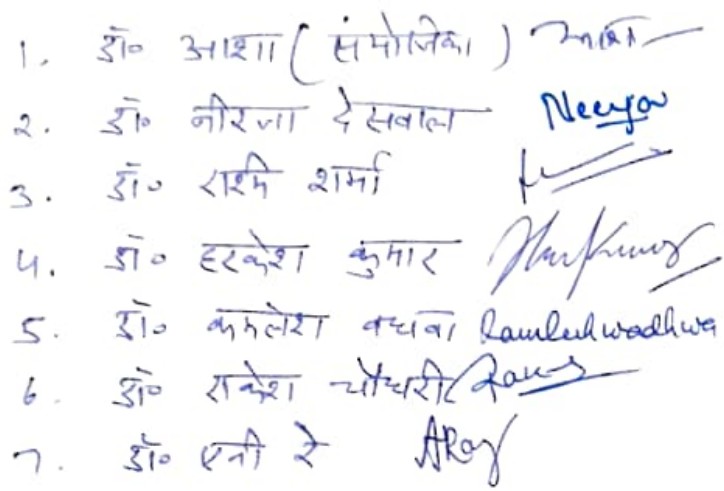 1. डॉ० आशा (संयोजिका) आशा
2. डॉ० नीरजा देसवाल Neerja
3. डॉ० राश्मि शर्मा
4. डॉ० हरकेश कुमार HarKumar
5. डॉ० कमलेश वधवा Kamlesh wadhwa
6. डॉ० राकेश चौधरी
7. डॉ० एनी रे ARay